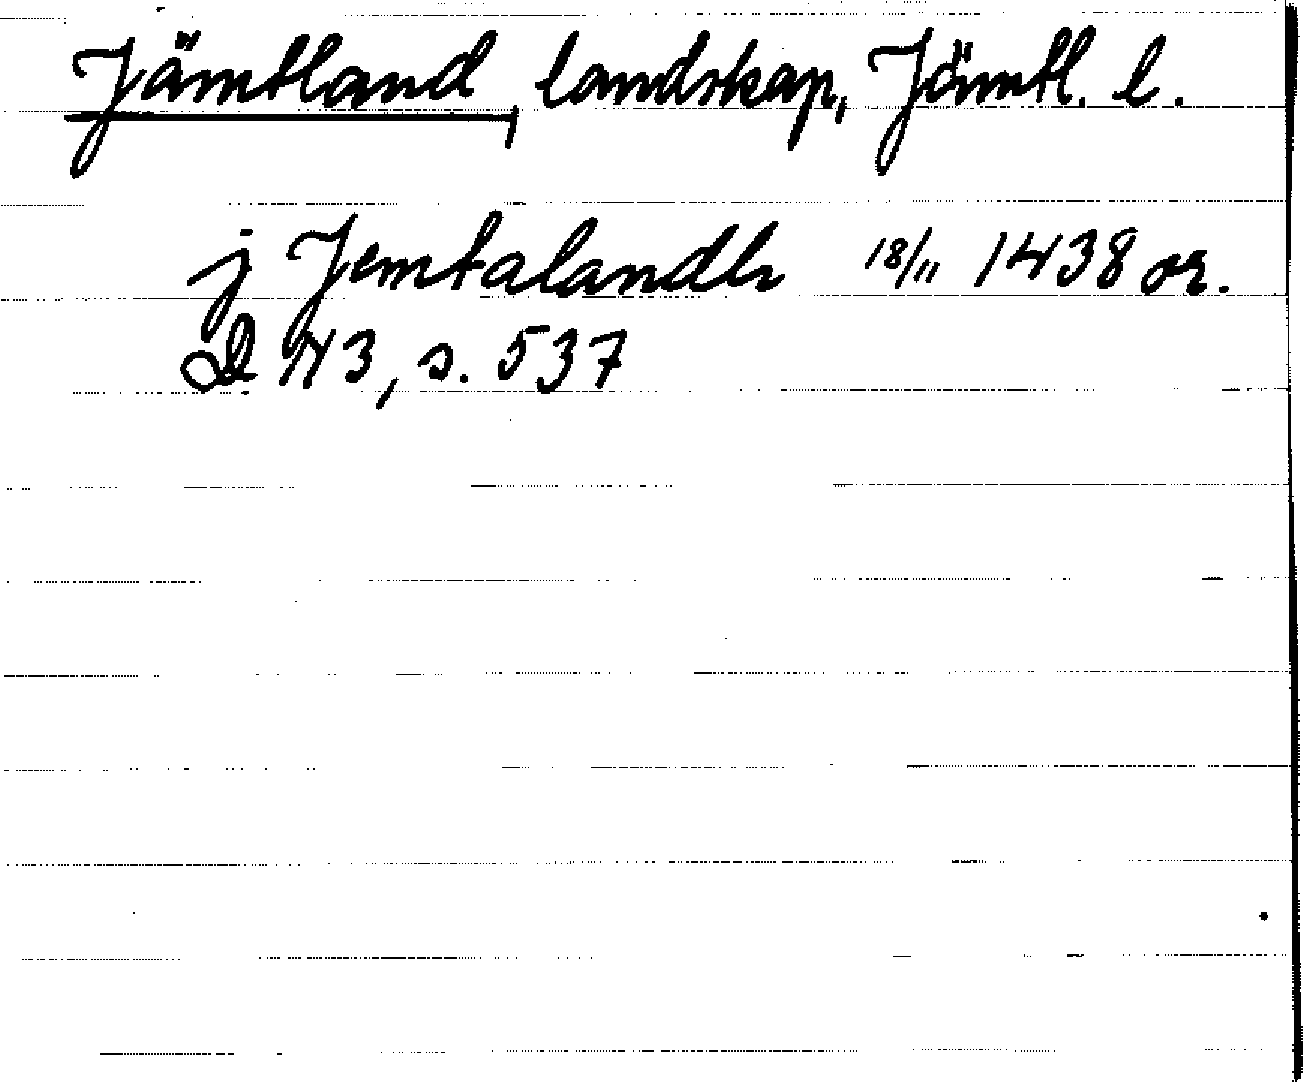 Jämtland, landskap, Jämtl. l.
j Jemtalande 18/11 1438 or.
D 43, s. 537